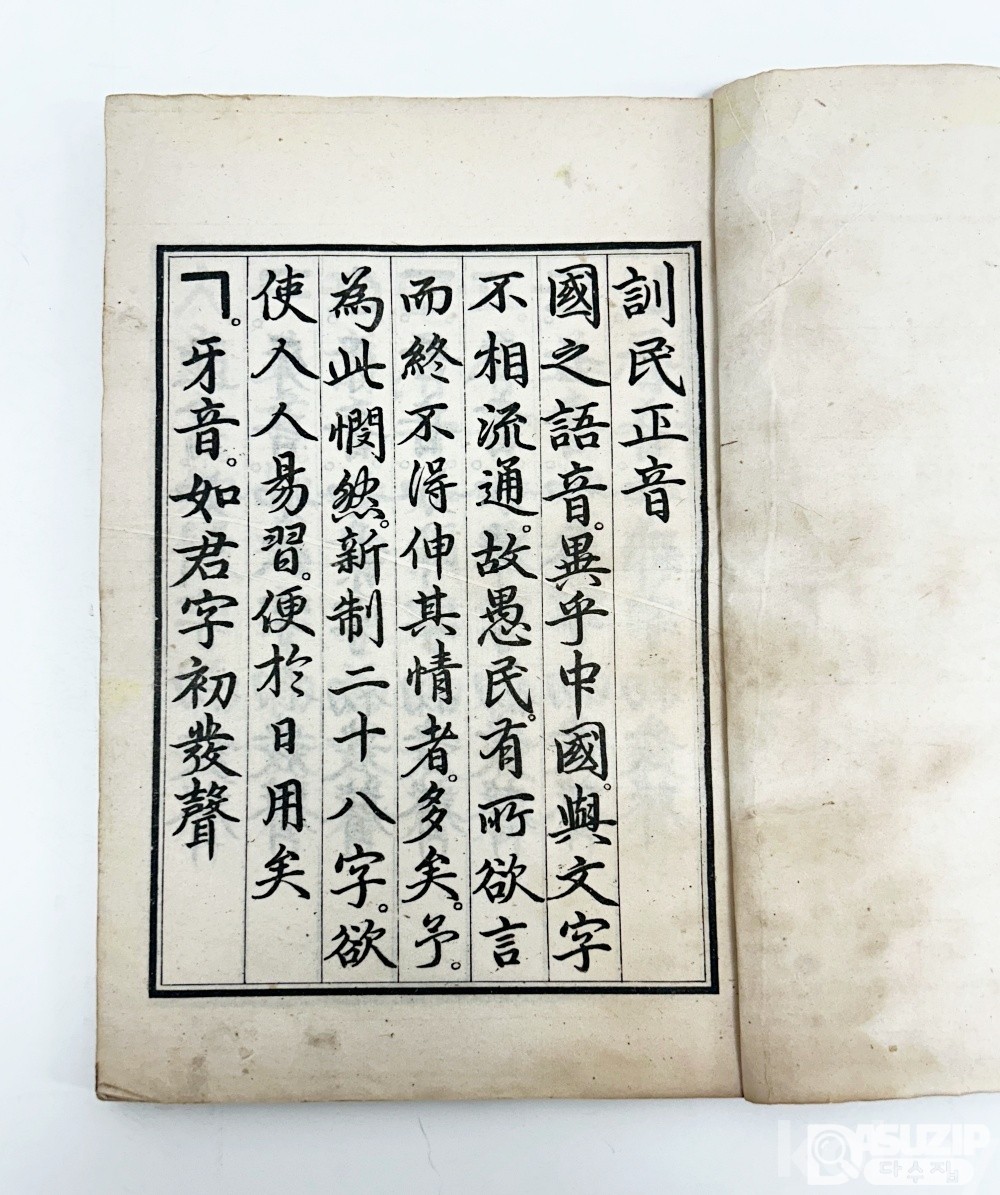 訓民正音
國之語音。異乎中國。與文字
不相流通。故愚民。有所欲言
而終不得伸其情者。多矣。予。
為此憫然。新制二十八字。欲
使人人易習。便於日用矣
ㄱ。牙音。如君字初發聲
DASUZIP
다수집